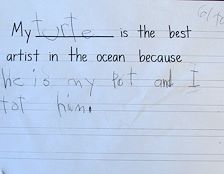 My torte is the best
artist in the ocean because
he is my pet and I
tot him.